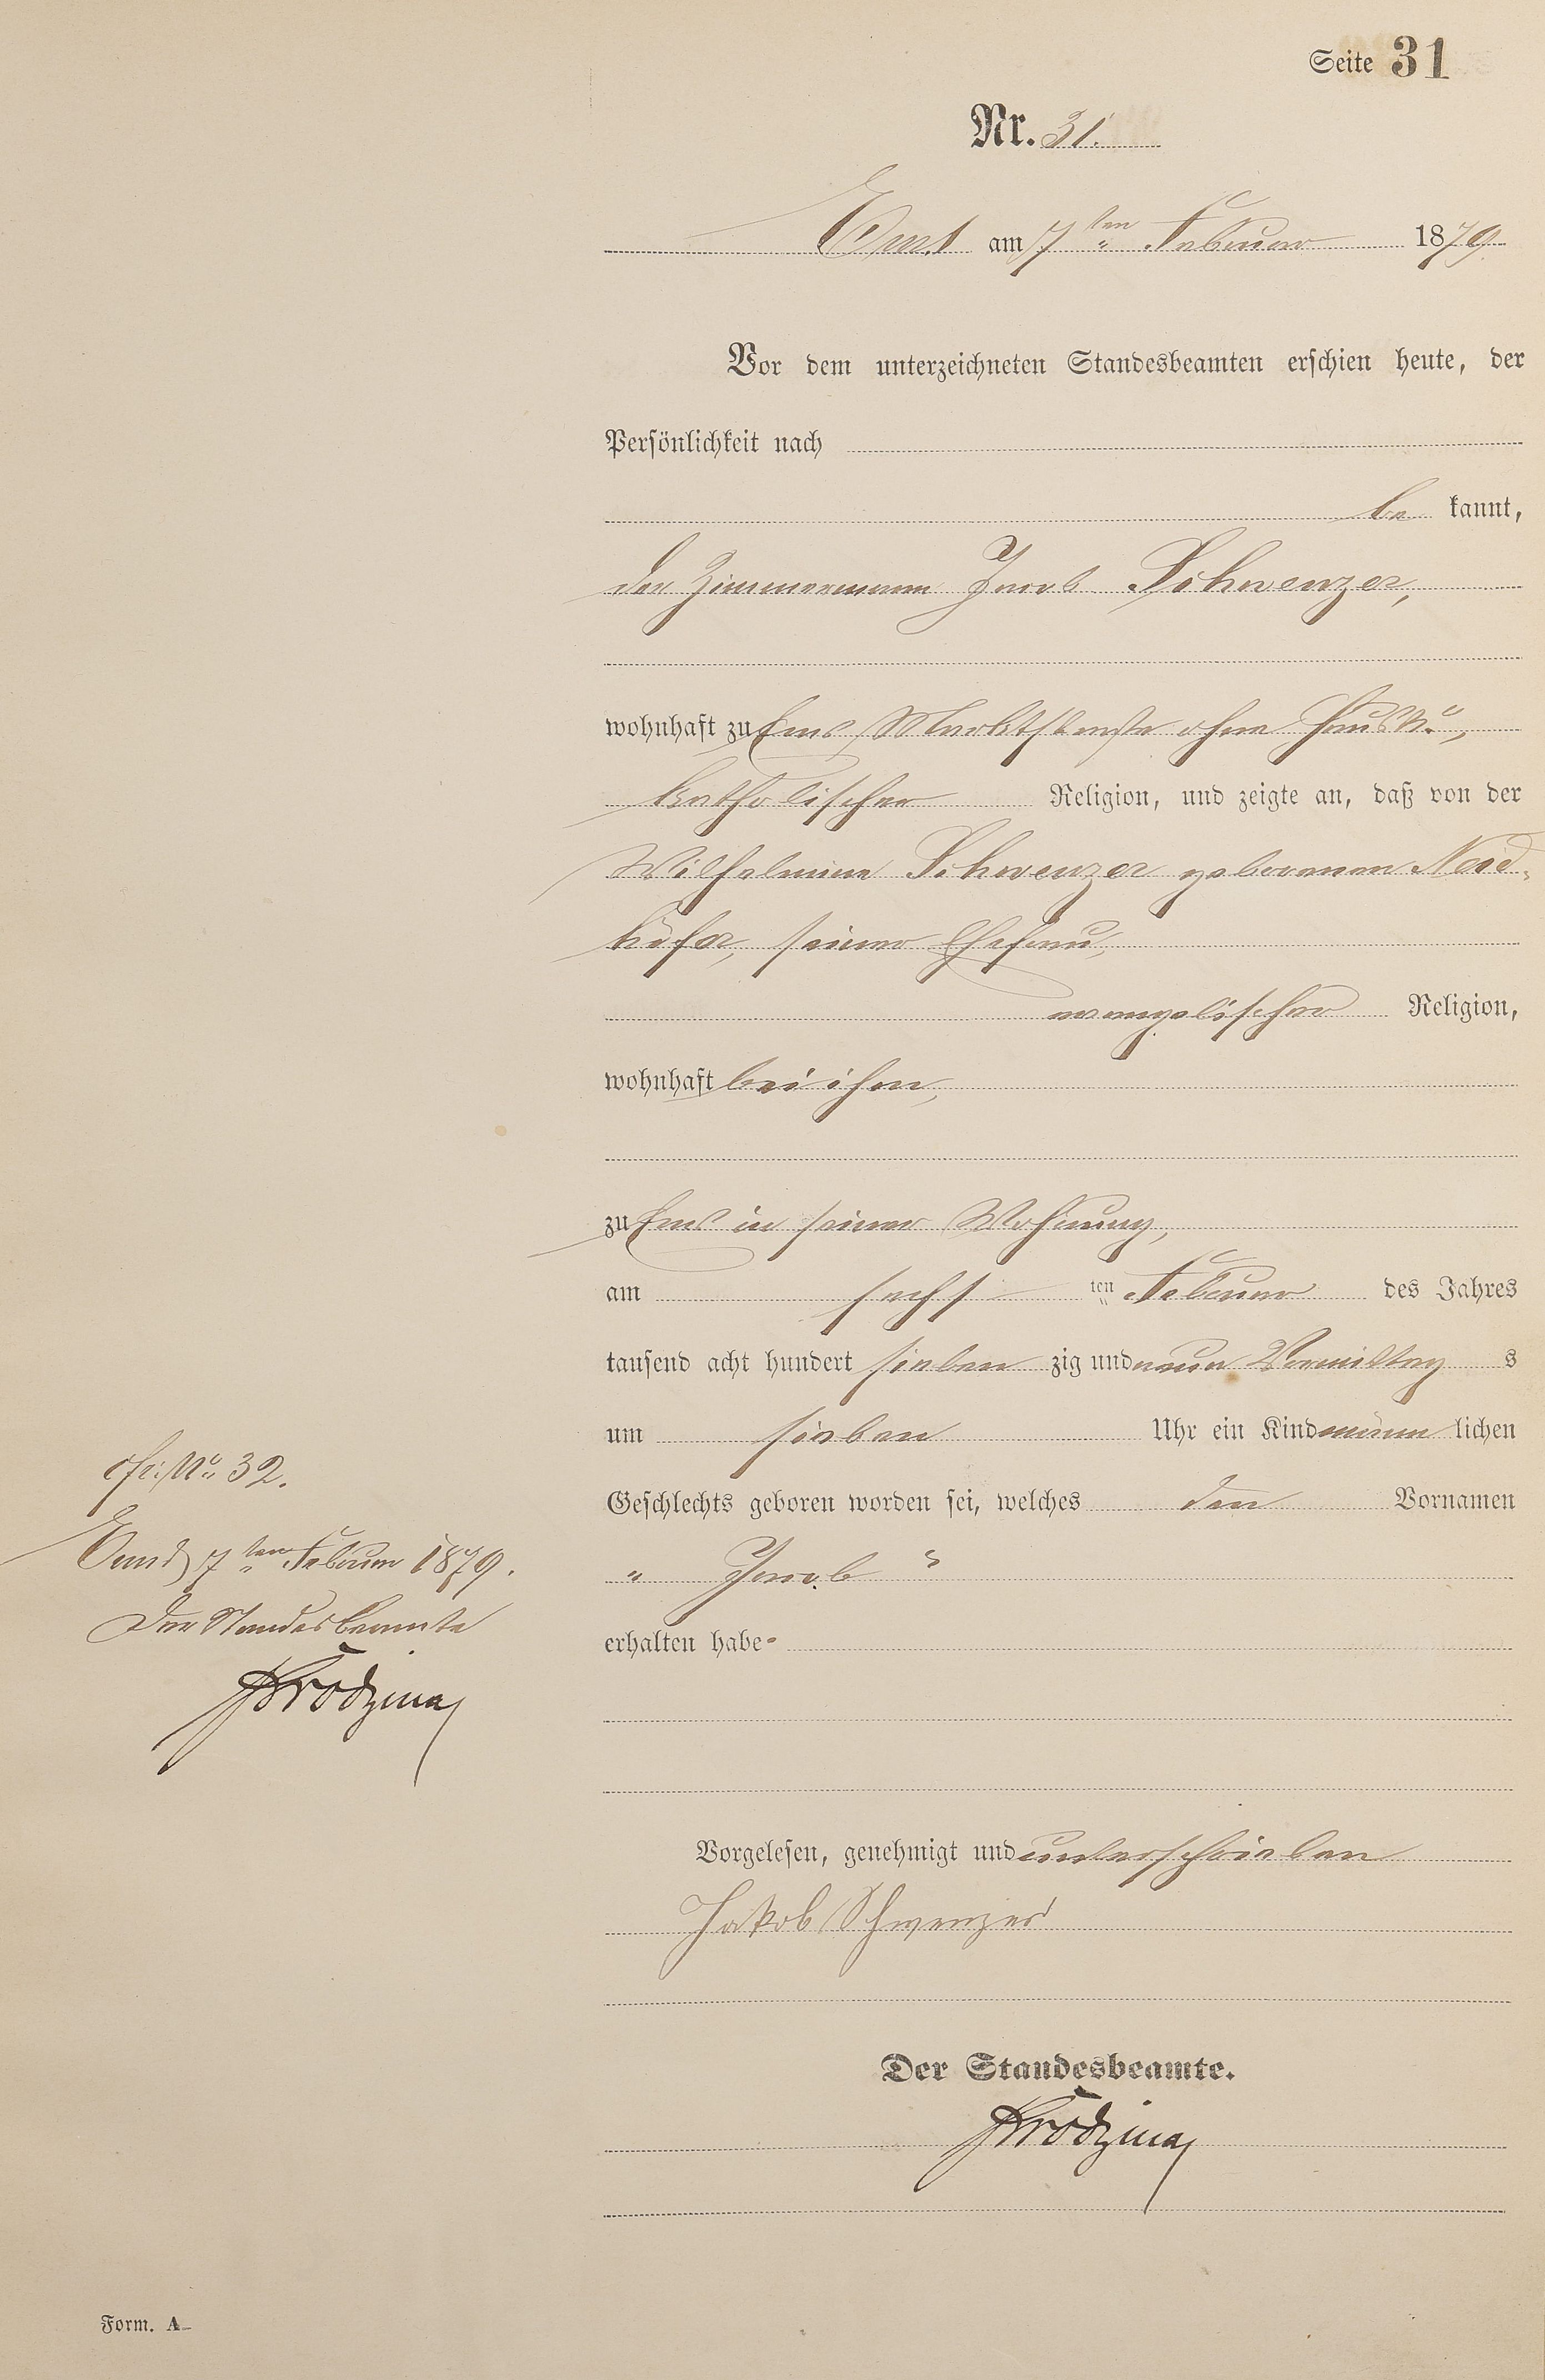 Seite 31
Nr. 31.
Ems am 7ten Februar 1879
Vor dem unterzeichneten Standesbeamten erschien heute, der
Persönlichkeit nach
be kannt,
der Zimmermann Jacob Schwenzer,
wohnhaft zu Ems Marktstraße ohne Haus No,
katholischer Religion, und zeigte an, daß von der
Wilhelmine Schwenzer geborenen Neid-
höfer, seiner Ehefrau,
evangelischer Religion,
wohnhaft bei ihm,
zu Ems in seiner Wohnung,
am sechsten Februar des Jahres
tausend acht hundert sieben zig und neun Vormittag s
um sieben Uhr ein Kind männ lichen
Geschlechts geboren worden sei, welches den Vornamen
„ Jacob “
erhalten habe.
Vorgelesen, genehmigt und unterschrieben
Jakob Schwenzer
Der Standesbeamte.
cfr: No 32.
Ems, 7ten Februar 1879.
Der Standesbeamte
Form. A